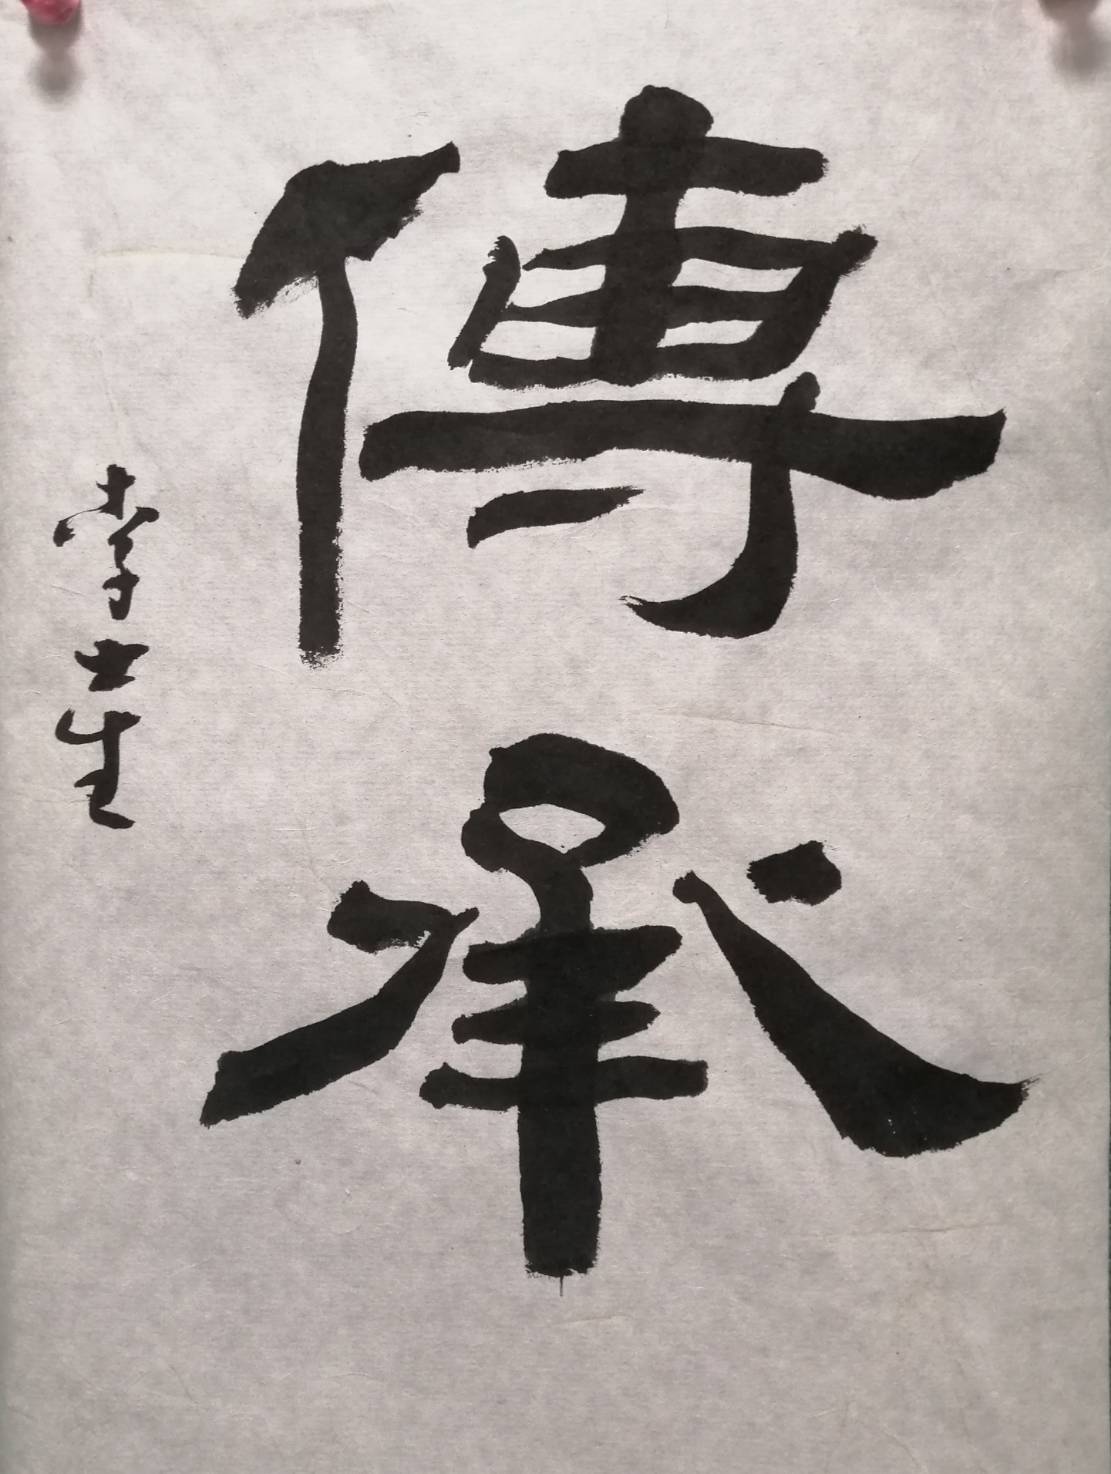 傳承
李士生